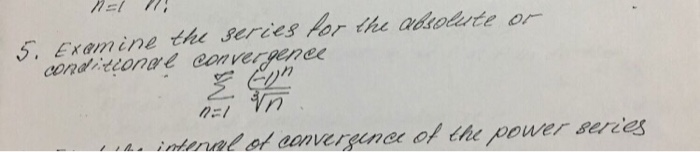 n=1 n!
5. Examine the series for the absolute or
conditional convergence
∞
Σ (-1)ⁿ / ∛n
n=1
interval of convergence of the power series